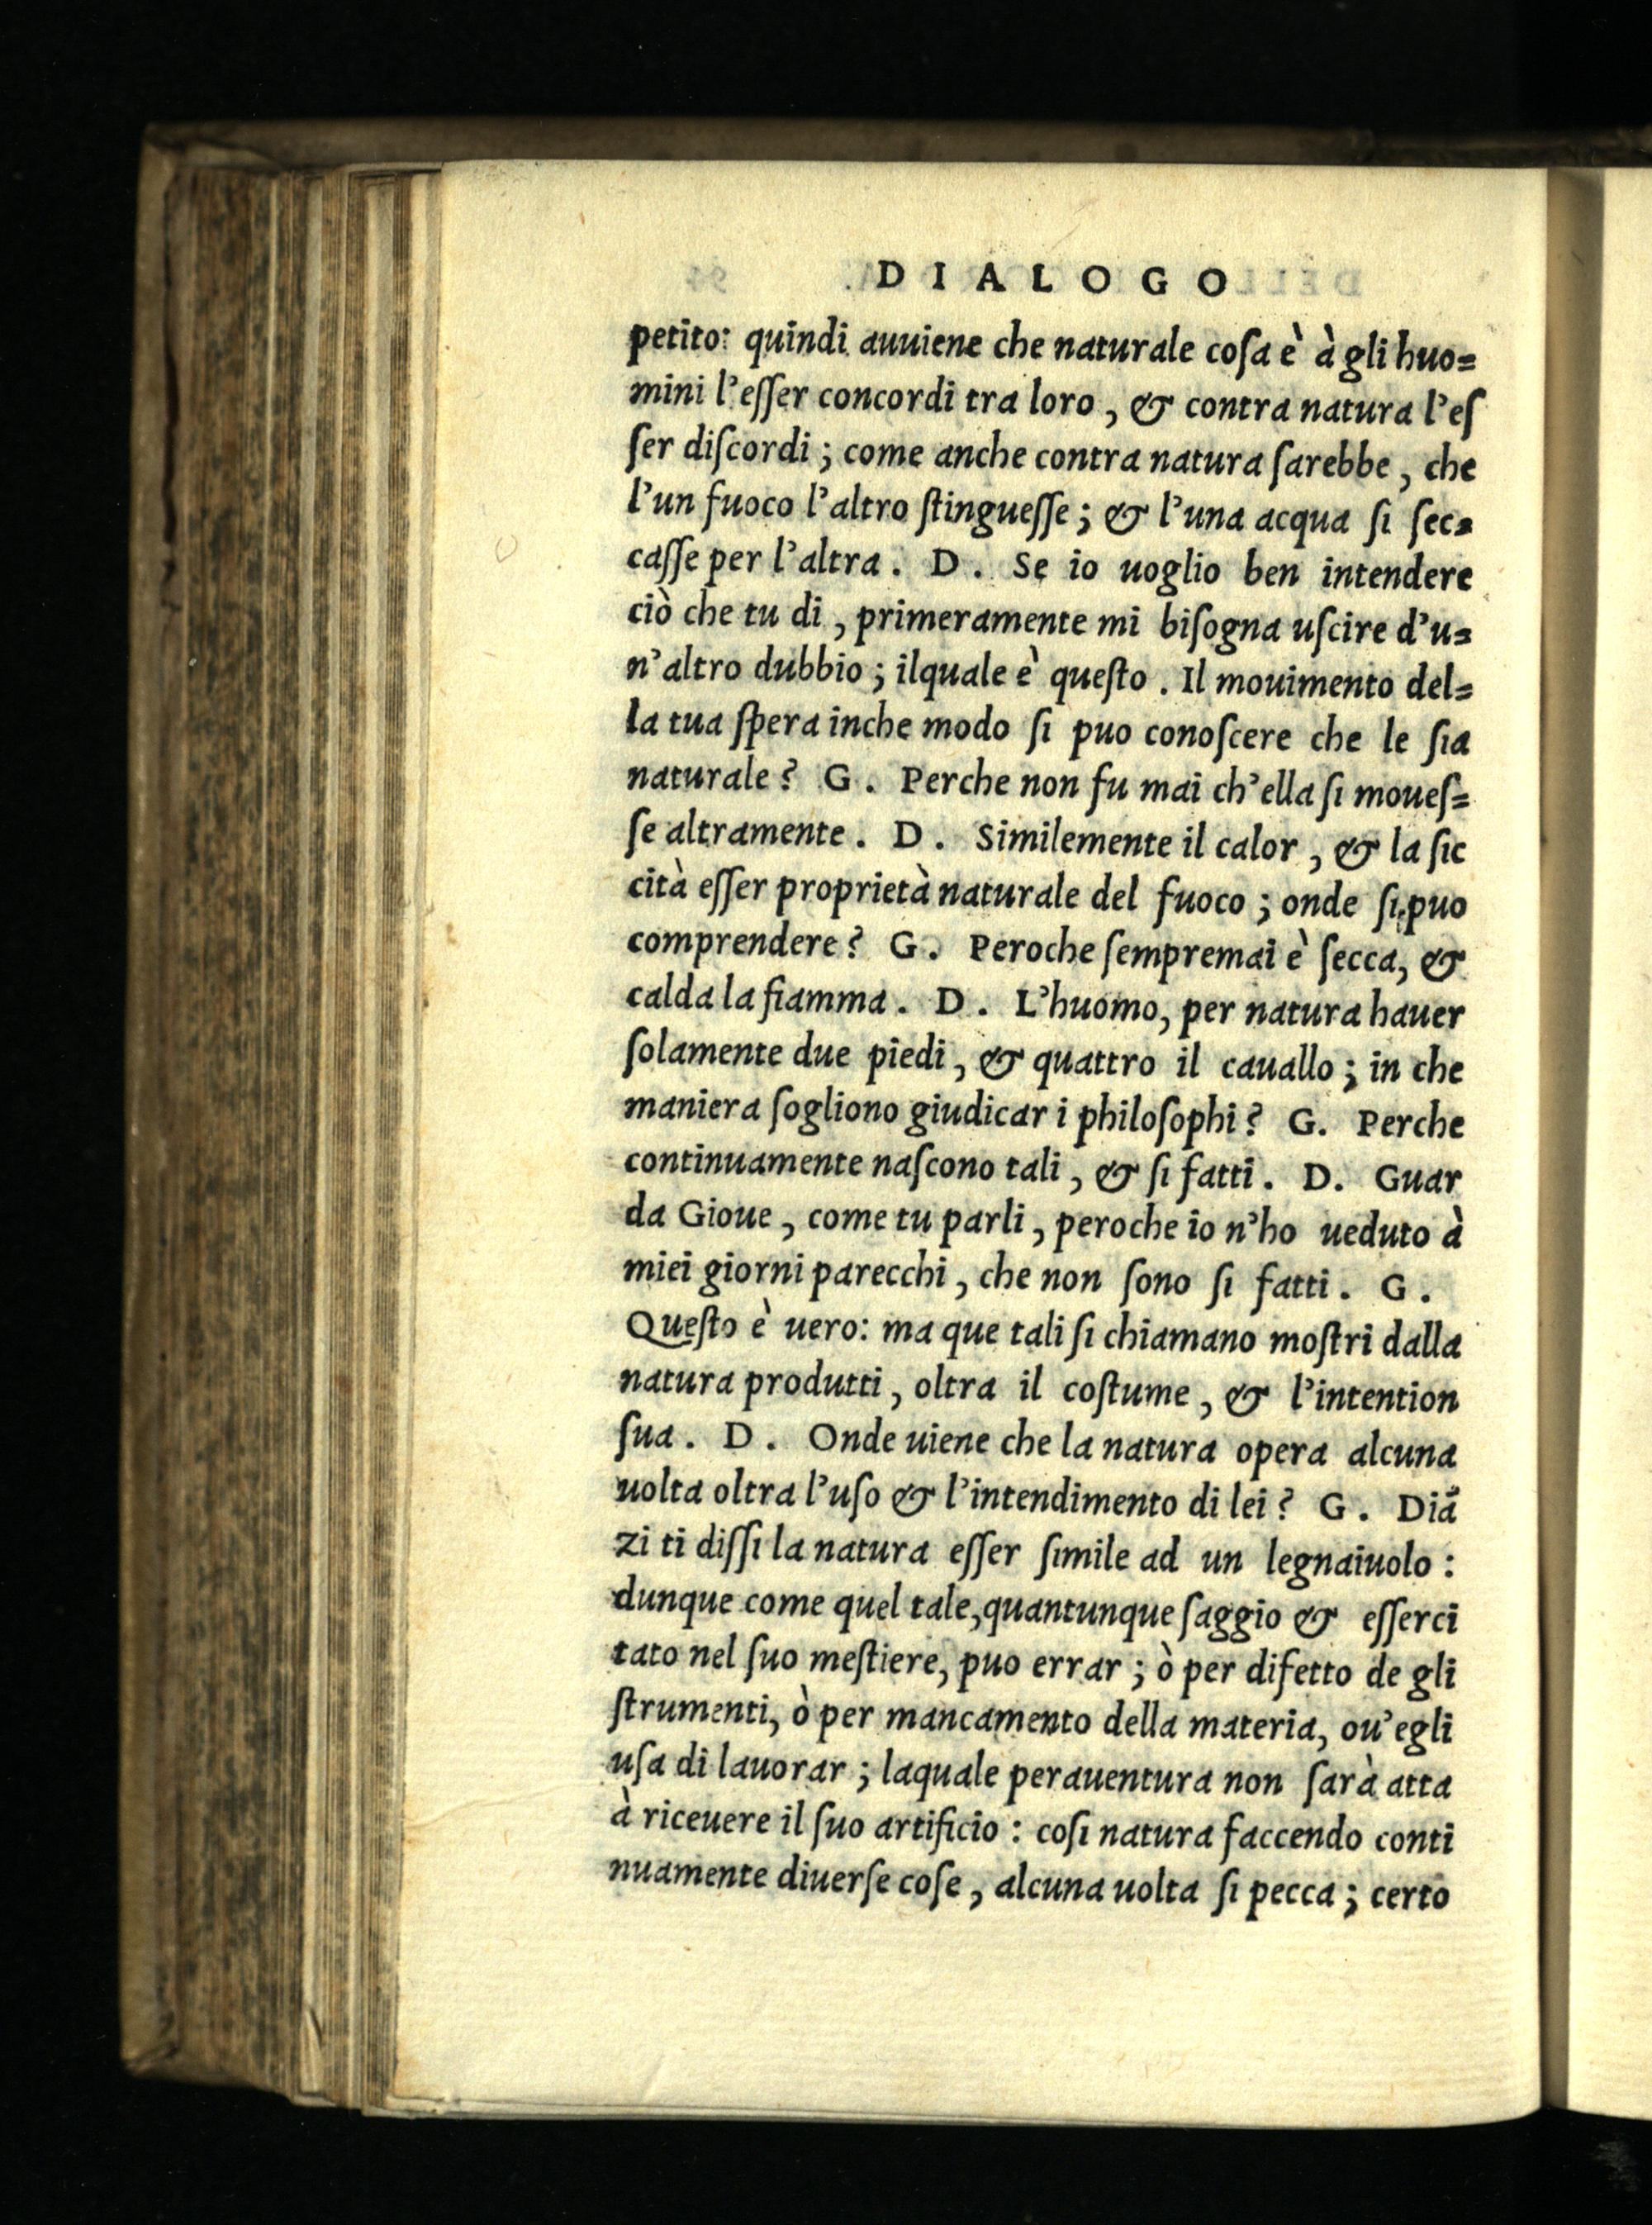 DIALOGO
petito: quindi auuiene che naturale coſa è à gli huo=
mini l'eſſer concordi tra loro, & contra natura l'eſ
ſer diſcordi; come anche contra natura ſarebbe, che
l'un fuoco l'altro ſtingueſſe; & l'una acqua ſi ſec=
caſſe per l'altra. D. Se io uoglio ben intendere
ciò che tu di, primeramente mi biſogna uſcire d'u=
n'altro dubbio; ilquale è queſto. Il mouimento del=
la tua ſpera inche modo ſi puo conoſcere che le ſia
naturale? G. Perche non fu mai ch'ella ſi moueſ=
ſe altramente. D. Similemente il calor, & la ſic
cità eſſer proprietà naturale del fuoco; onde ſi puo
comprendere? G. Peroche ſempremai è ſecca, &
calda la fiamma. D. L'huomo, per natura hauer
ſolamente due piedi, & quattro il cauallo; in che
maniera ſogliono giudicar i philoſophi? G. Perche
continuamente naſcono tali, & ſi fatti. D. Guar
da Gioue, come tu parli, peroche io n'ho ueduto à
miei giorni parecchi, che non ſono ſi fatti. G.
Queſto è uero: ma que tali ſi chiamano moſtri dalla
natura produtti, oltra il coſtume, & l'intention
ſua. D. Onde uiene che la natura opera alcuna
uolta oltra l'uſo & l'intendimento di lei? G. Diā
zi ti diſſi la natura eſſer ſimile ad un legnaiuolo:
dunque come quel tale, quantunque ſaggio & eſſerci
tato nel ſuo meſtiere, puo errar; ò per difetto de gli
ſtrumenti, ò per mancamento della materia, ou'egli
uſa di lauorar; laquale perauentura non ſarà atta
à riceuere il ſuo artificio: coſi natura faccendo conti
nuamente diuerſe coſe, alcuna uolta ſi pecca; certo